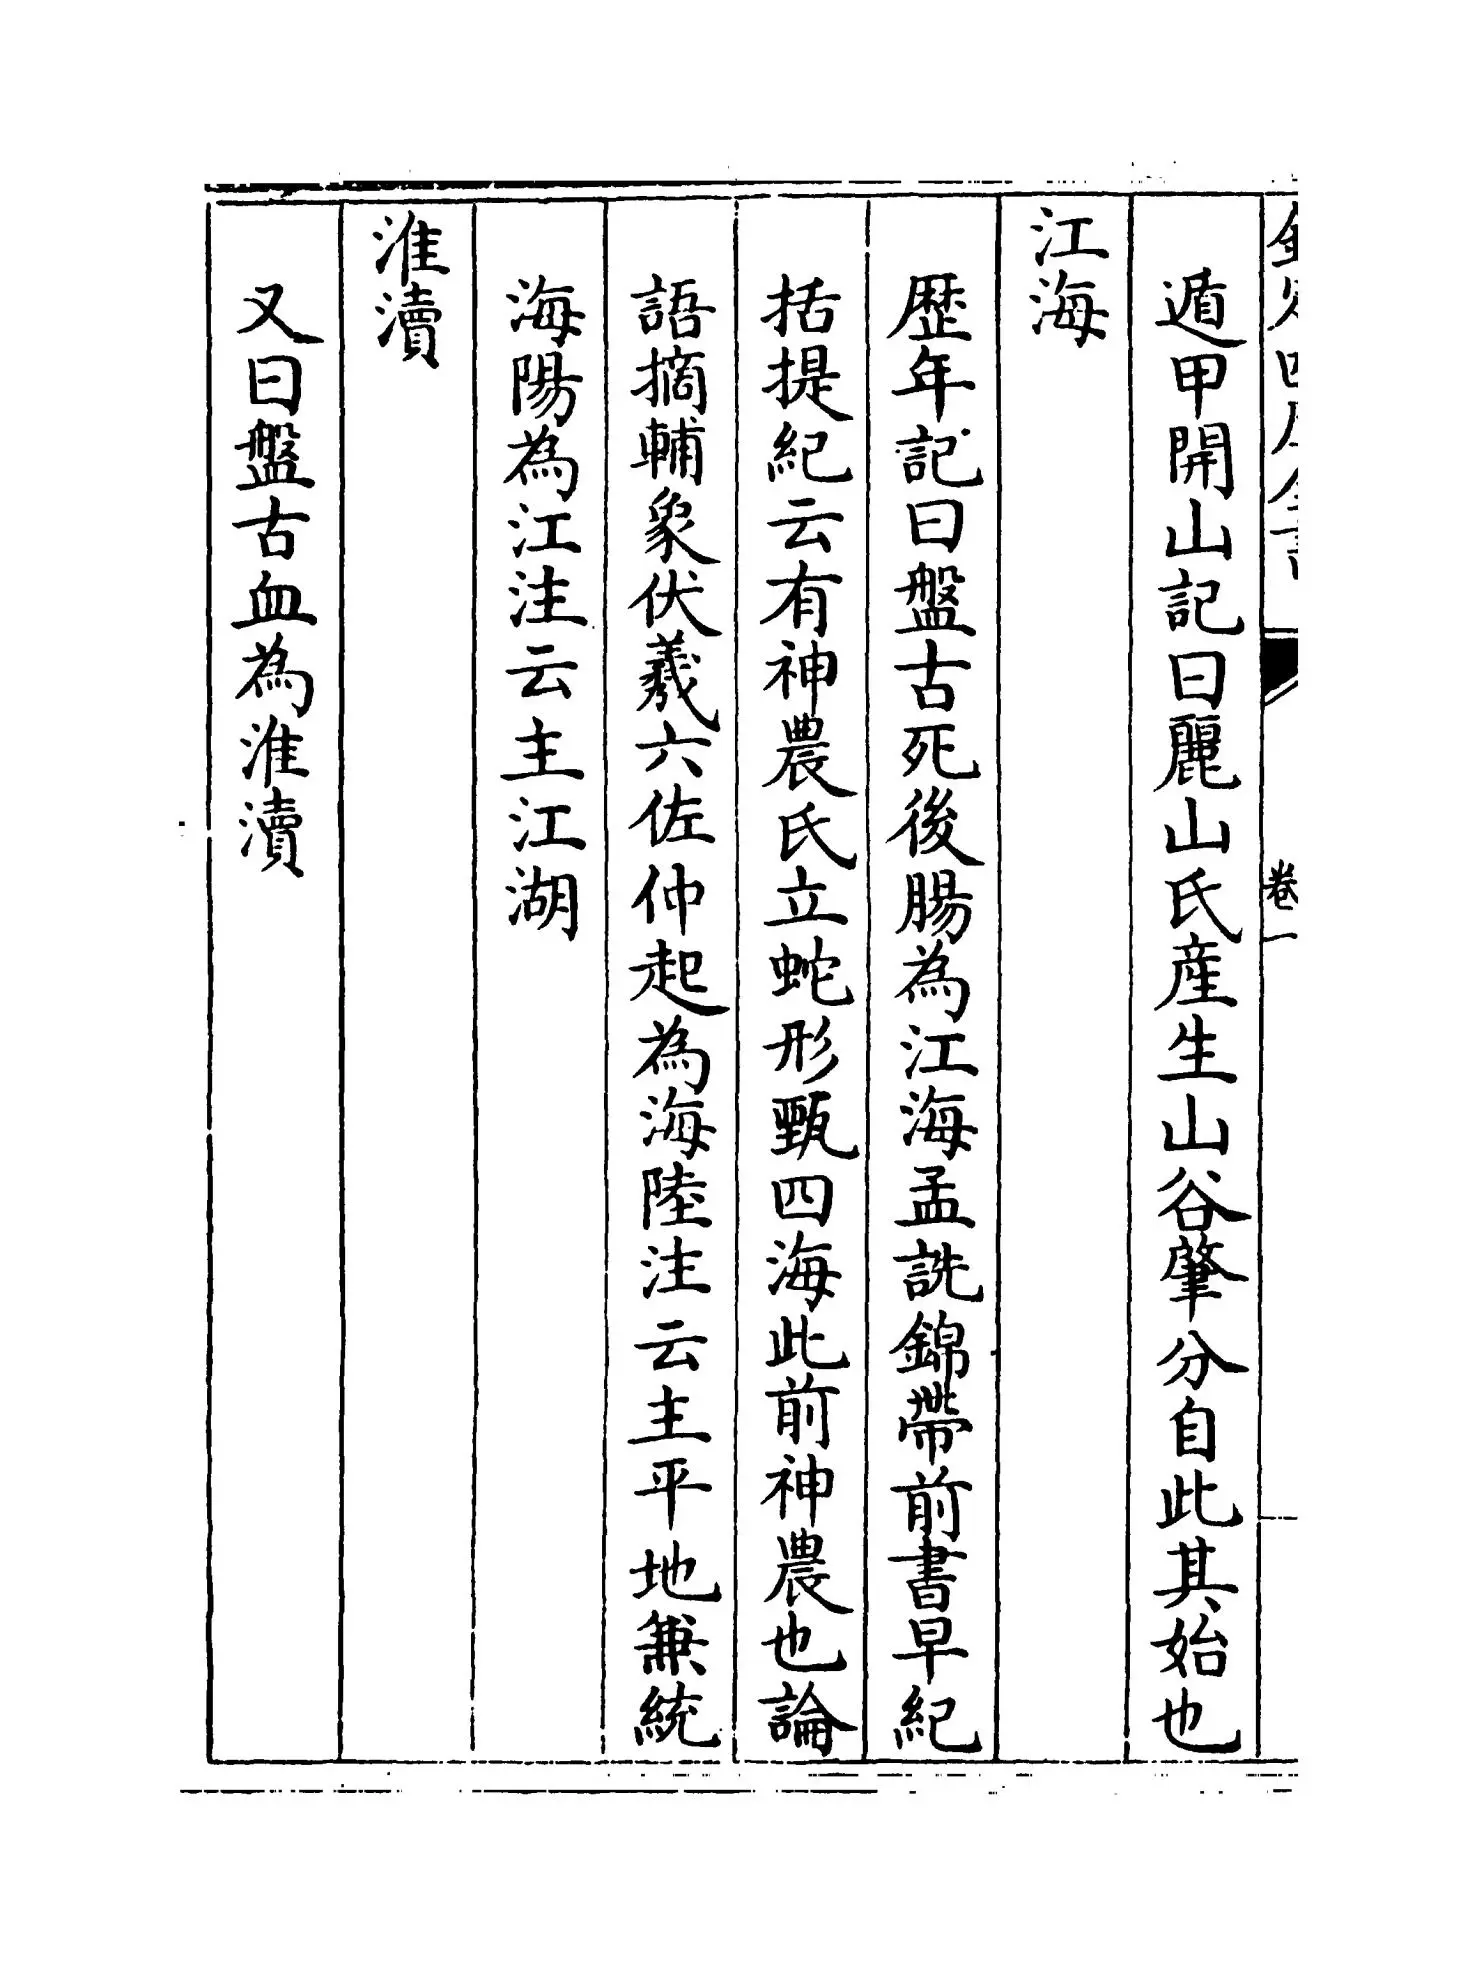 欽定四庫全書
卷一
遁甲開山記曰麗山氏産生山谷肇分自此其始也
江海
歴年記曰盤古死後腸為江海孟詵錦帶前書早紀
括提紀云有神農氏立蛇形甄四海此前神農也論
語摘輔象伏羲六佐仲起為海陸注云主平地兼統
海陽為江洼云主江湖
淮瀆
又曰盤古血為淮瀆